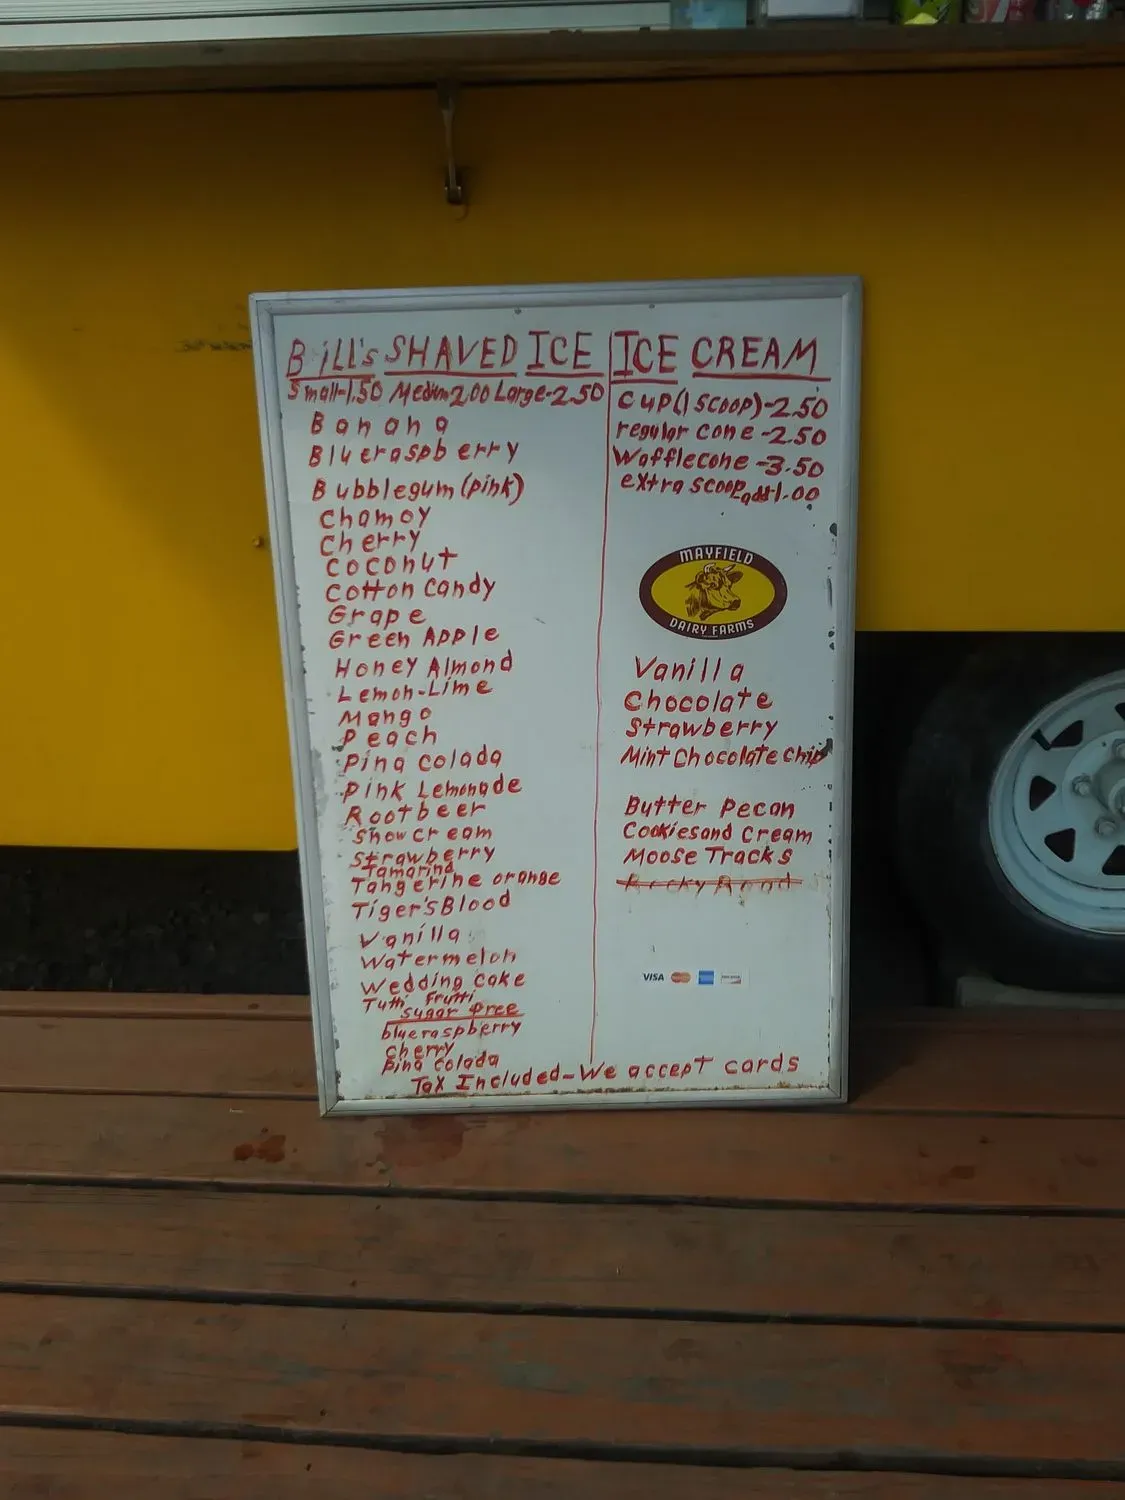 Bill's SHAVED ICE
Small-1.50 Medium 2.00 Large-2.50
Banana
Blueraspberry
Bubblegum (pink)
Chamoy
Cherry
Coconut
Cotton Candy
Grape
Green Apple
Honey Almond
Lemon-Lime
Mango
Peach
Pina Colada
Pink Lemonade
Rootbeer
Snowcream
Strawberry
Tamarind
Tangerine orange
Tiger's Blood
Vanilla
Watermelon
Wedding Cake
Tutti Frutti
Sugar Free
blueraspberry
Cherry
Pina Colada
ICE CREAM
Cup (1 scoop)-2.50
regular cone-2.50
Wafflecone-3.50
extra scoop add 1.00
MAYFIELD
DAIRY FARMS
Vanilla
Chocolate
Strawberry
Mint Chocolate Chip
Butter Pecan
Cookies and Cream
Moose Tracks
Rocky Road
VISA
Tax Included-We accept cards